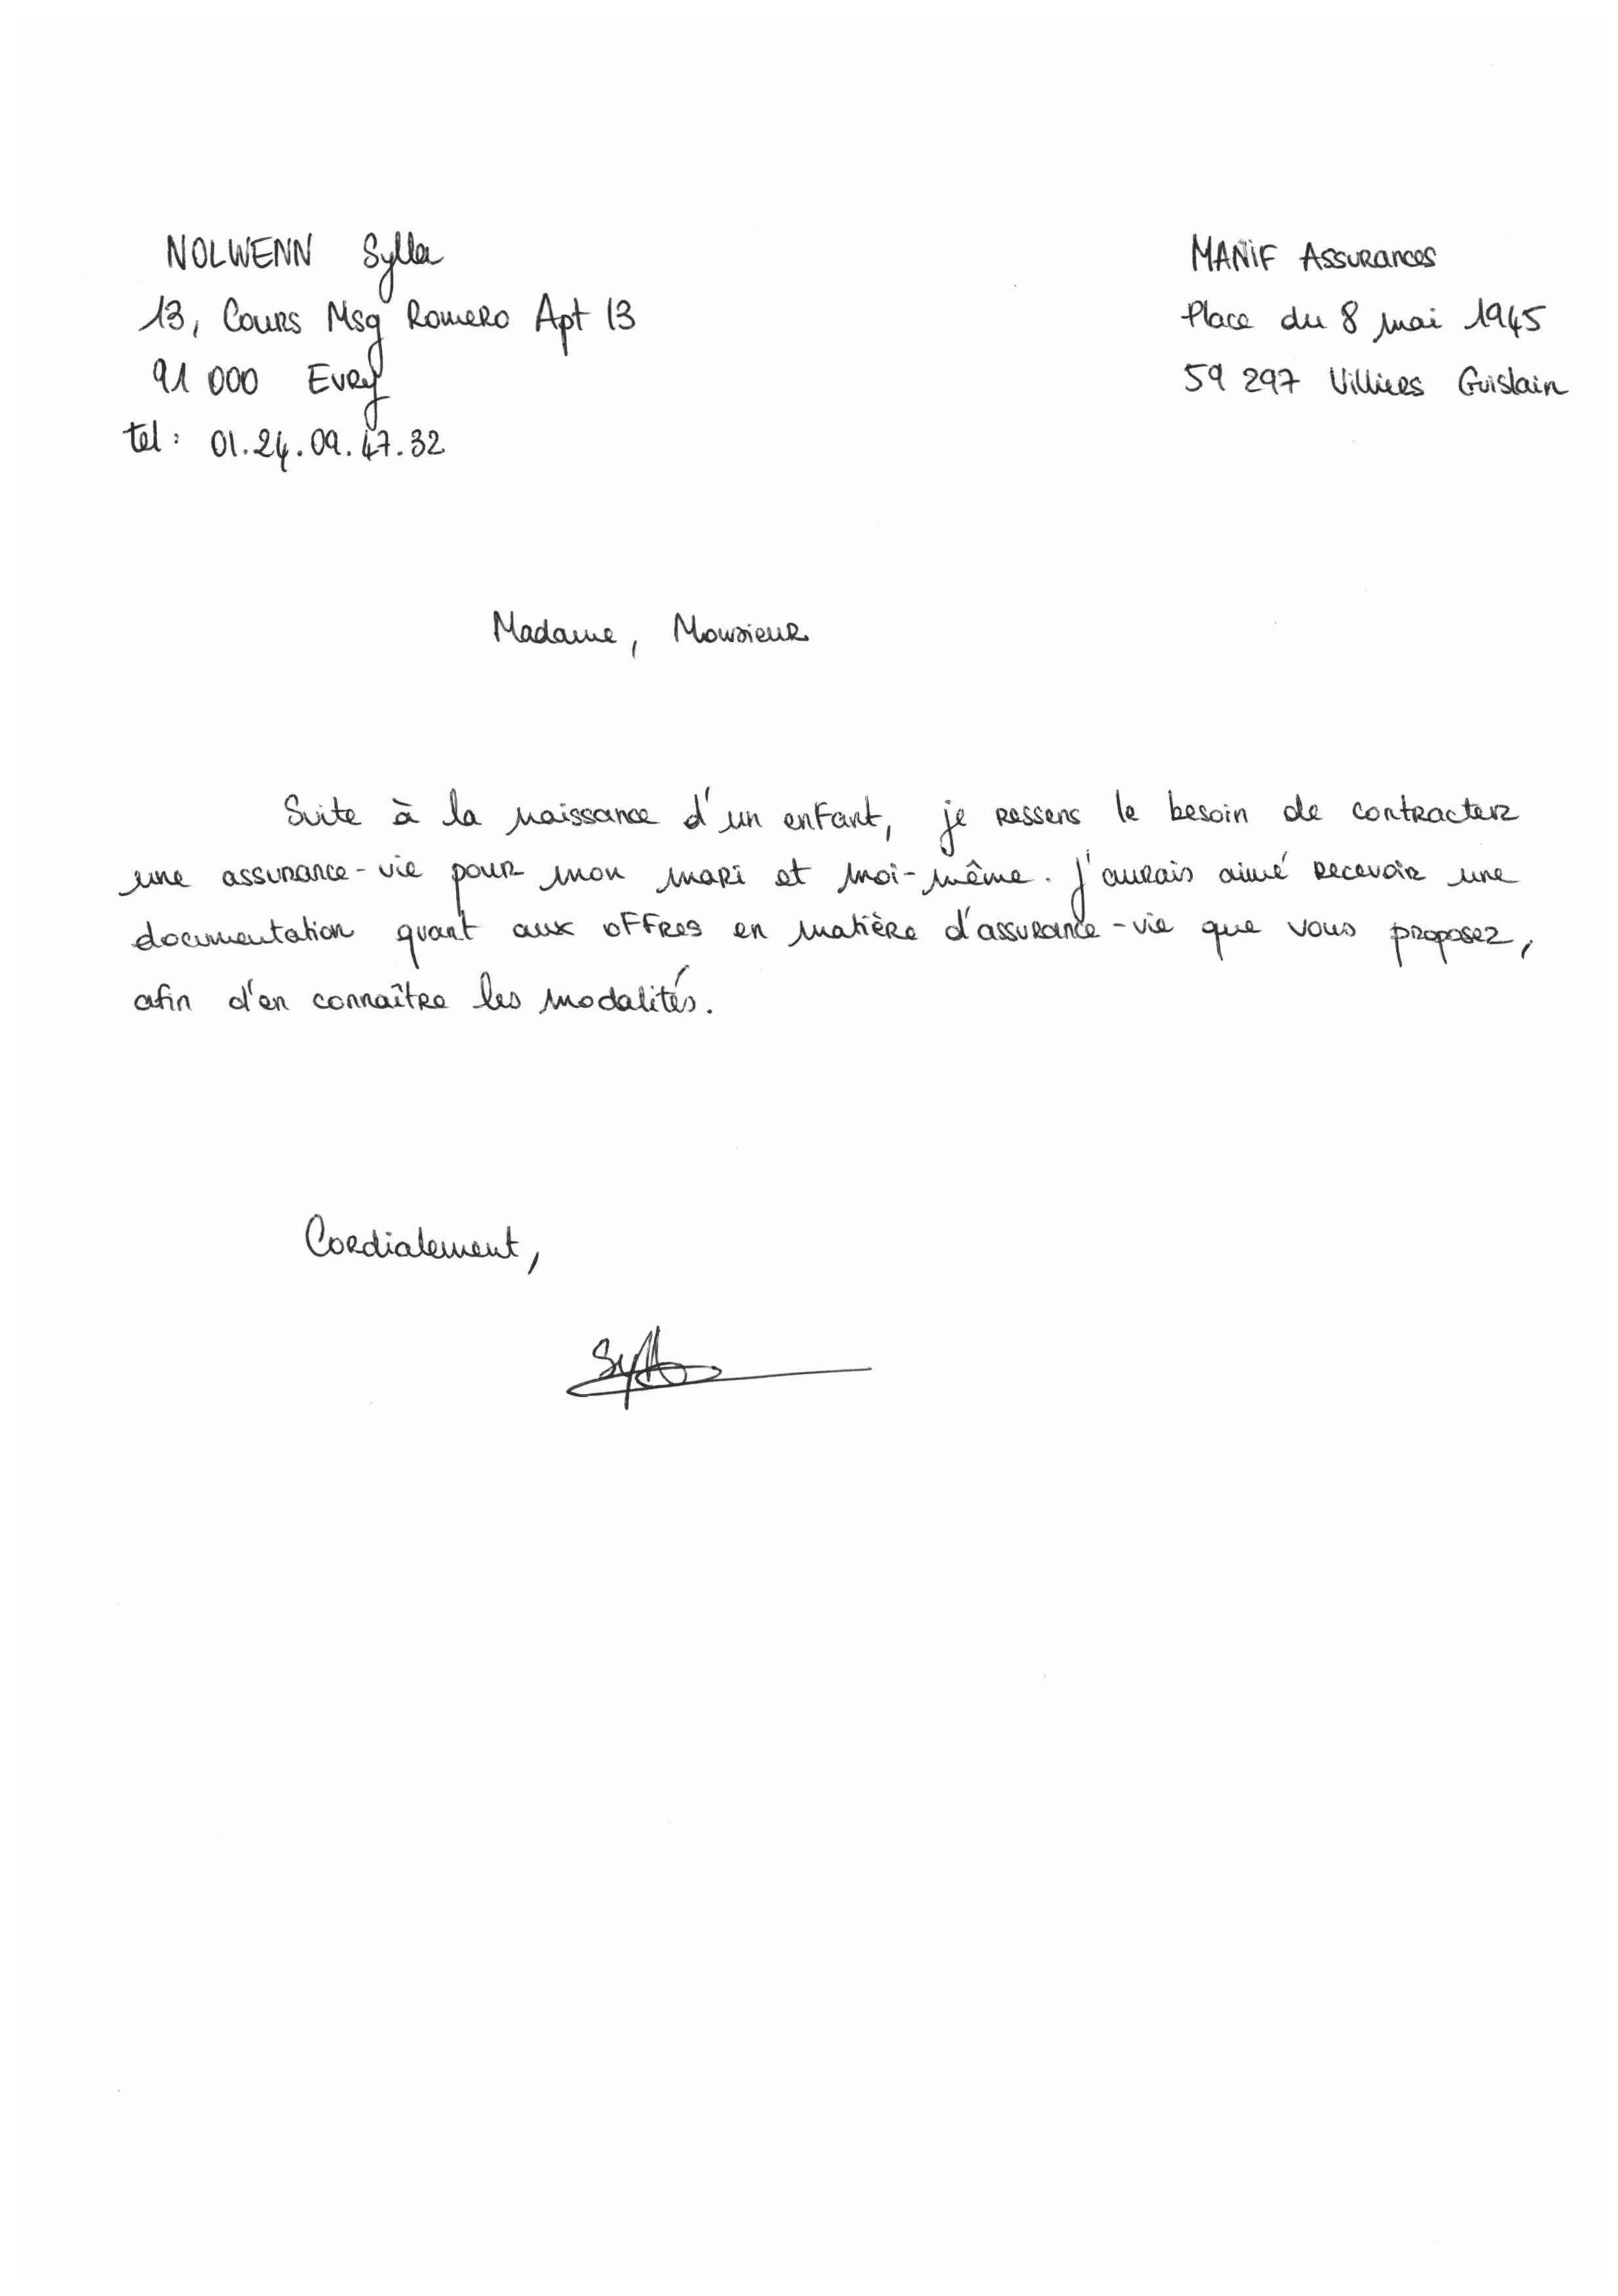 NOLWENN Sylla
13, Cours Msg Romero Apt 13
91 000 Evry
tel : 01.24.09.47.32
MANIF Assurances
Place du 8 mai 1945
59 297 Villiers Guislain
Madame, Monsieur
Suite à la naissance d'un enfant, je ressens le besoin de contracter
une assurance-vie pour mon mari et moi-même. J'aurais aimé recevoir une
documentation quant aux offres en matière d'assurance-vie que vous proposez,
afin d'en connaître les modalités.
Cordialement,
Sylla